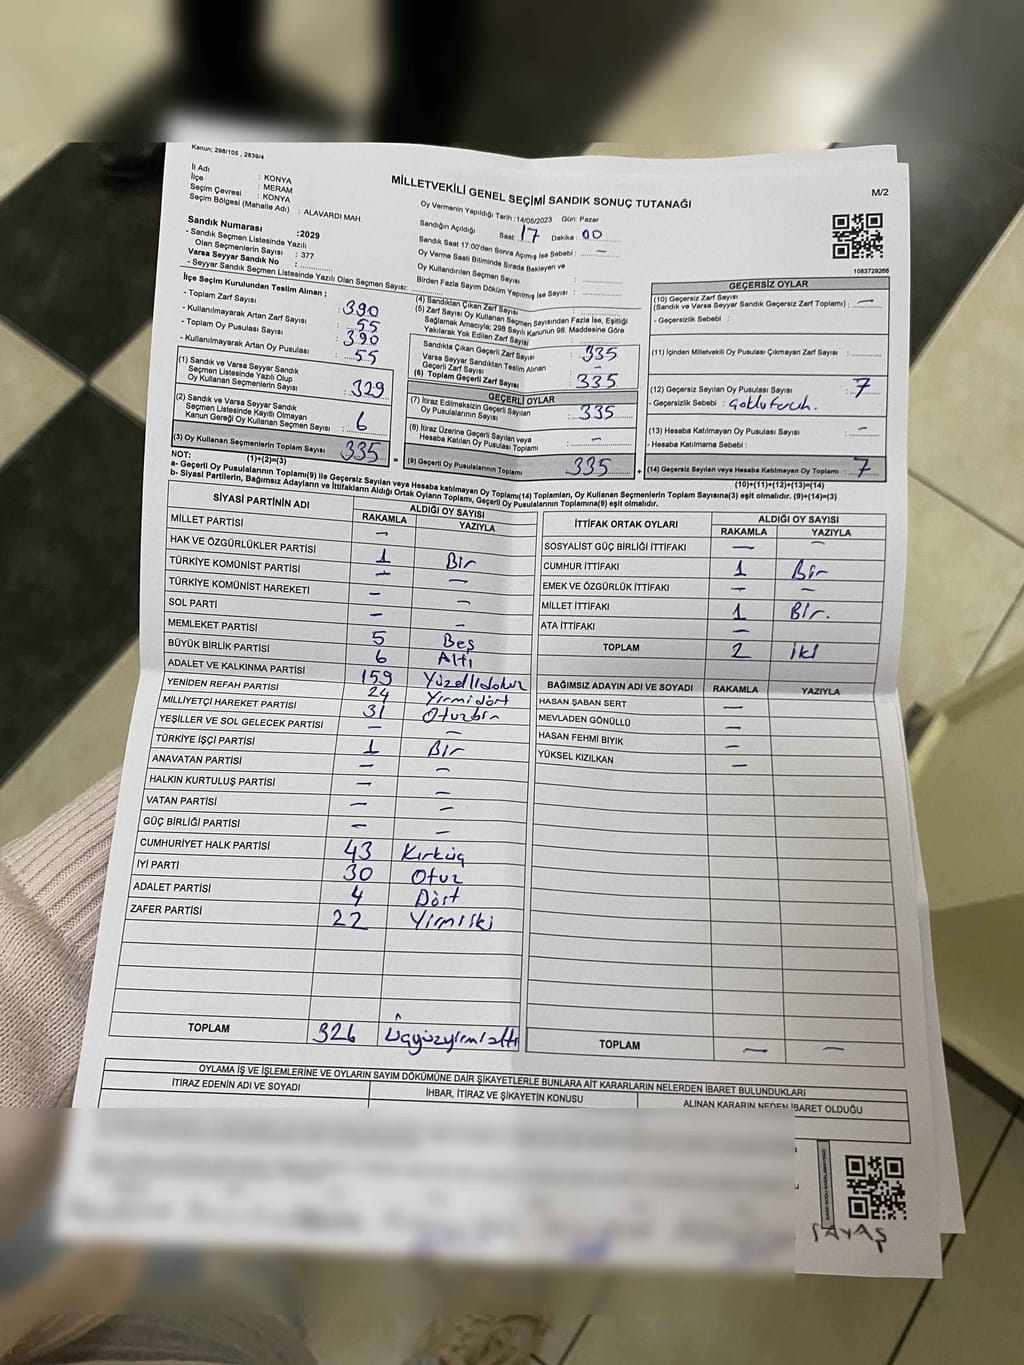 Kanun; 298/105 , 2839/4
MİLLETVEKİLİ GENEL SEÇİMİ SANDIK SONUÇ TUTANAĞI
M/2
İl Adı : KONYA
İlçe : MERAM
Seçim Çevresi : KONYA
Seçim Bölgesi (Mahalle Adı) : ALAVARDI MAH.
Sandık Numarası :2029
- Sandık Seçmen Listesinde Yazılı
Olan Seçmenlerin Sayısı : 377
Varsa Seyyar Sandık No :
- Seyyar Sandık Seçmen Listesinde Yazılı Olan Seçmen Sayısı:
Oy Vermenin Yapıldığı Tarih :14/05/2023 Gün: Pazar
Sandığın Açıldığı Saat: 17 Dakika : 00
Sandık Saat 17:00'den Sonra Açılmış İse Sebebi : –
Oy Verme Saati Bitiminde Sırada Bekleyen ve
Oy Kullandırılan Seçmen Sayısı :
Birden Fazla Sayım Döküm Yapılmış İse Sayısı :
1083729266
İlçe Seçim Kurulundan Teslim Alınan ;
- Toplam Zarf Sayısı : 390
- Kullanılmayarak Artan Zarf Sayısı : 55
- Toplam Oy Pusulası Sayısı : 390
- Kullanılmayarak Artan Oy Pusulası : 55
(1) Sandık ve Varsa Seyyar Sandık
Seçmen Listesinde Yazılı Olup
Oy Kullanan Seçmenlerin Sayısı : 329
(2) Sandık ve Varsa Seyyar Sandık
Seçmen Listesinde Kayıtlı Olmayan
Kanun Gereği Oy Kullanan Seçmen Sayısı : 6
(3) Oy Kullanan Seçmenlerin Toplam Sayısı : 335
(1)+(2)=(3)
(4) Sandıktan Çıkan Zarf Sayısı :
(5) Zarf Sayısı Oy Kullanan Seçmen Sayısından Fazla İse, Eşitliği
Sağlamak Amacıyla; 298 Sayılı Kanunun 98. Maddesine Göre
Yakılarak Yok Edilen Zarf Sayısı :
Sandıkta Çıkan Geçerli Zarf Sayısı : 335
Varsa Seyyar Sandıktan Teslim Alınan
Geçerli Zarf Sayısı : –
(6) Toplam Geçerli Zarf Sayısı : 335
GEÇERLİ OYLAR
(7) İtiraz Edilmeksizin Geçerli Sayılan
Oy Pusulalarının Sayısı : 335
(8) İtiraz Üzerine Geçerli Sayılan veya
Hesaba Katılan Oy Pusulası Toplamı : –
= (9) Geçerli Oy Pusulalarının Toplamı 335 +
GEÇERSİZ OYLAR
(10) Geçersiz Zarf Sayısı
(Sandık ve Varsa Seyyar Sandık Geçersiz Zarf Toplamı) : –
- Geçersizlik Sebebi :
(11) İçinden Milletvekili Oy Pusulası Çıkmayan Zarf Sayısı :
(12) Geçersiz Sayılan Oy Pusulası Sayısı : 7
- Geçersizlik Sebebi :
(13) Hesaba Katılmayan Oy Pusulası Sayısı : –
- Hesaba Katılmama Sebebi :
(14) Geçersiz Sayılan veya Hesaba Katılmayan Oy Pusulası Toplamı : 7
(10)+(11)+(12)+(13)=(14)
NOT:
a- Geçerli Oy Pusulalarının Toplamı(9) ile Geçersiz Sayılan veya Hesaba katılmayan Oy Pusulası Toplamı(14) Toplamları, Oy Kullanan Seçmenlerin Toplam Sayısına(3) eşit olmalıdır. (9)+(14)=(3)
b- Siyasi Partilerin, Bağımsız Adayların ve İttifakların Aldığı Ortak Oyların Toplamı, Geçerli Oy Pusulalarının Toplamına(9) eşit olmalıdır.
SİYASİ PARTİNİN ADI ALDIĞI OY SAYISI
RAKAMLA YAZIYLA
MİLLET PARTİSİ –
HAK VE ÖZGÜRLÜKLER PARTİSİ 1 Bir
TÜRKİYE KOMÜNİST PARTİSİ – –
TÜRKİYE KOMÜNİST HAREKETİ – –
SOL PARTİ – –
MEMLEKET PARTİSİ 5 Beş
BÜYÜK BİRLİK PARTİSİ 6 Altı
ADALET VE KALKINMA PARTİSİ 159 Yüzellidokuz
YENİDEN REFAH PARTİSİ 24 Yirmidört
MİLLİYETÇİ HAREKET PARTİSİ 31 Otuzbir
YEŞİLLER VE SOL GELECEK PARTİSİ – –
TÜRKİYE İŞÇİ PARTİSİ 1 Bir
ANAVATAN PARTİSİ – –
HALKIN KURTULUŞ PARTİSİ – –
VATAN PARTİSİ – –
GÜÇ BİRLİĞİ PARTİSİ – –
CUMHURİYET HALK PARTİSİ 43 Kırküç
İYİ PARTİ 30 Otuz
ADALET PARTİSİ 4 Dört
ZAFER PARTİSİ 22 Yirmiiki
TOPLAM 326 Üçyüzyirmialtı
İTTİFAK ORTAK OYLARI ALDIĞI OY SAYISI
RAKAMLA YAZIYLA
SOSYALİST GÜÇ BİRLİĞİ İTTİFAKI – –
CUMHUR İTTİFAKI 1 Bir
EMEK VE ÖZGÜRLÜK İTTİFAKI – –
MİLLET İTTİFAKI 1 Bir.
ATA İTTİFAKI –
TOPLAM 2 iki
BAĞIMSIZ ADAYIN ADI VE SOYADI RAKAMLA YAZIYLA
HASAN ŞABAN SERT –
MEVLADEN GÖNÜLLÜ –
HASAN FEHMİ BIYIK –
YÜKSEL KIZILKAN –
TOPLAM – –
OYLAMA İŞ VE İŞLEMLERİNE VE OYLARIN SAYIM DÖKÜMÜNE DAİR ŞİKAYETLERLE BUNLARA AİT KARARLARIN NELERDEN İBARET BULUNDUKLARI
İTİRAZ EDENİN ADI VE SOYADI İHBAR, İTİRAZ VE ŞİKAYETİN KONUSU ALINAN KARARIN NEDEN İBARET OLDUĞU
SAVAŞ